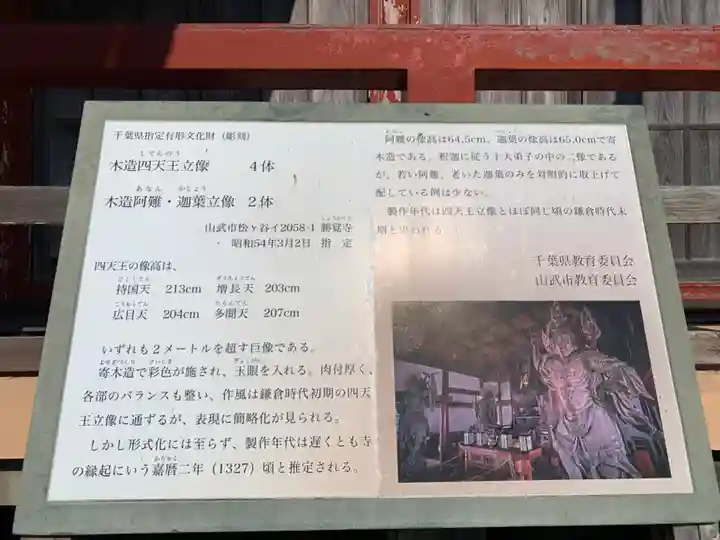 千葉県指定有形文化財（彫刻）
してんのう
木造四天王立像　　4体
あなん　かしょう
木造阿難・迦葉立像　2体
しょうかくじ
山武市松ヶ谷イ2058-1 勝覚寺
昭和54年3月2日　指　定
四天王の像高は、
じこくてん　ぞうちょうてん
持国天　213cm　増長天　203cm
こうもくてん　たもんてん
広目天　204cm　多聞天　207cm
いずれも2メートルを超す巨像である。
よせぎづくり　さいしき　ぎょくがん
寄木造で彩色が施され、玉眼を入れる。肉付厚く、
各部のバランスも整い、作風は鎌倉時代初期の四天
王立像に通ずるが、表現に簡略化が見られる。
しかし形式化には至らず、製作年代は遅くとも寺
かりゃく
の縁起にいう嘉暦二年（1327）頃と推定される。
阿難の像高は64.5cm、迦葉の像高は65.0cmで寄
木造である。釈迦に従う十大弟子の中の二像である
が、若い阿難、老いた迦葉のみを対照的に取上げて
配している例は少ない。
製作年代は四天王立像とほぼ同じ頃の鎌倉時代末
期と思われる。
千葉県教育委員会
山武市教育委員会